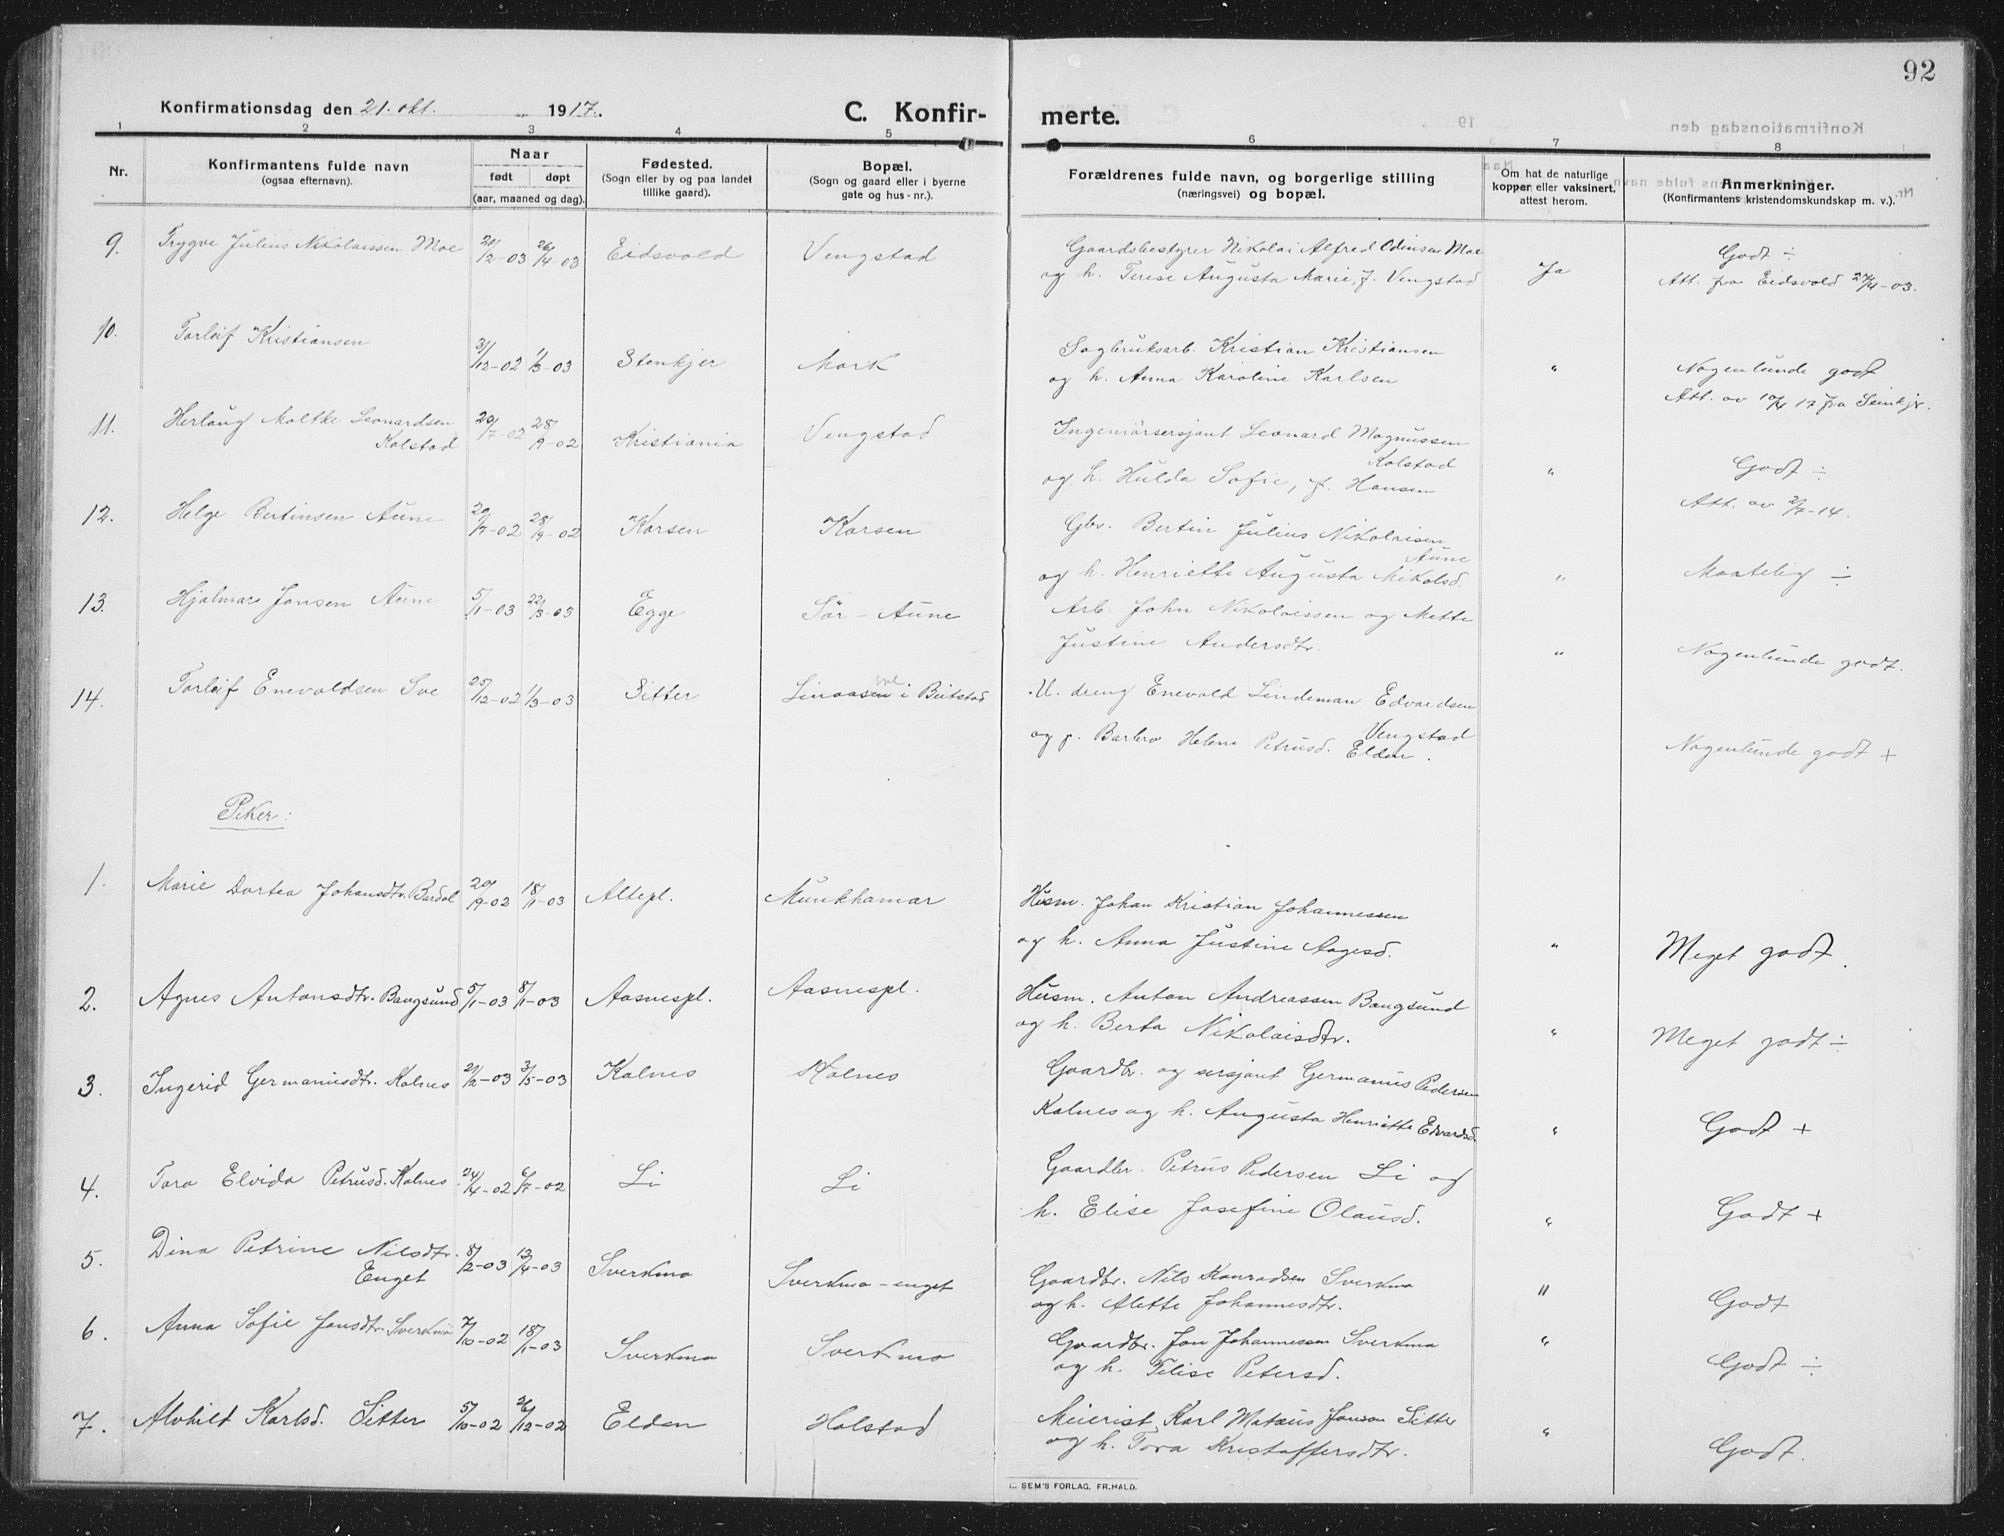 92
Konfirmationsdag den 21. okt. 1917.
C. Konfir- merte.
1 2 3 4 5 6 7 8
Nr.
Konfirmantens fulde navn
(ogsaa efternavn).
Naar
født døpt
(aar, maaned og dag).
Fødested.
(Sogn eller by og paa landet
tillike gaard).
Bopæl.
(Sogn og gaard eller i byerne
gate og hus-nr.).
Forældrenes fulde navn, og borgerlige stilling
(næringsvei) og bopæl.
Om hat de naturlige
kopper eller vaksinert,
attest herom.
Anmerkninger.
(Konfirmantens kristendomskundskap m. v.).
9. Trygve Julius Nikolaissen Moe 21/2-03 26/4-03 Eidsvold Vengstad Gaardsbestyrer Nikolai Alfred Odinsen Moe Ja Godt ÷
og h. Terese Augusta Marie, f. Vengstad Att. fra Eidsvold 27/4-03.
10. Torleif Kristiansen 31/12-02 1/3-03 Stenkjer Mork Sagbruksarb. Kristian Kristiansen " Nogenlunde godt
og h. Anna Karoline Karlsen Att. av 10/4 17 fra Steinkjr.
11. Herlaug Moltke Leonardsen 20/7-02 28/9-02 Kristiania Vengstad Ingeniørsersjant Leonard Magnussen " Godt ÷
Kolstad Kolstad
og h. Hulda Sofie, f. Hansen Att. av 2/7-14.
12. Helge Bertinsen Aune 29/7-02 28/9-02 Korsen Korsen Gbr. Bertin Julius Nikolaisen " Maatelig ÷
Aune
og h. Henriette Augusta Mikolsd.
13. Hjalmar Jonsen Aune 5/1-03 22/3-03 Egge Sør-Aune Arb. John Nikolaissen og Mette
Justine Andersdtr. " Nogenlunde godt.
14. Torleif Enevoldsen Sve 25/12-02 1/3-03 Sitter Linaasen i Beitstad U. dreng Enevold Lindeman Edvardsen
Vengstad
og p. Barbro Helene Petrusd. Elden. Nogenlunde godt +
Piker:
1. Marie Dortea Johansdtr. Bardal 20/9-02 18/1-03 Altepl. Munkhamar Husm. Johan Kristian Johannessen
og h. Anna Justine Aagesd. " Meget godt.
2. Agnes Antonsdtr. Bangsund 5/1-03 8/1-03 Aasnespl. Aasnespl. Husm. Anton Andreassen Bangsund
og h. Berta Nikolaisdtr. " Meget godt ÷
3. Ingerid Germaniusdtr. Kalnes 21/2-03 3/5-03 Kalnes Kalnes Gaardbr. og sersjant Germanus Pedersen
Kalnes og h. Augusta Henriette Edvardsd. " Godt +
4. Tora Elvida Petrusd. Kalnes 24/4-02 6/7-02 Li Li Gaardbr. Petrus Pedersen Li og
h. Elise Josefine Olausd. " Godt +
5. Dina Petrine Nilsdtr. 8/2-03 13/4-03 Sverkmo Sverkmo-enget Gaardbr. Nils Konradsen Sverkmo
Enget og h. Alette Johannesdtr. " Godt
6. Anna Sofie Jonsdtr. Sverkmo 7/10-02 18/1-03 Sverkmo Sverkmo Gaardbr. Jon Johannessen Sverkmo
og h. Elise Petersd. " Godt ÷
7. Alvhild Karlsd. Sitter 5/10-02 26/12-02 Elden Holstad Meierist Karl Matæus Jonson Sitter
og h. Tora Kristoffersdtr. " Godt.
SEM'S FORLAG, FR.HALD.